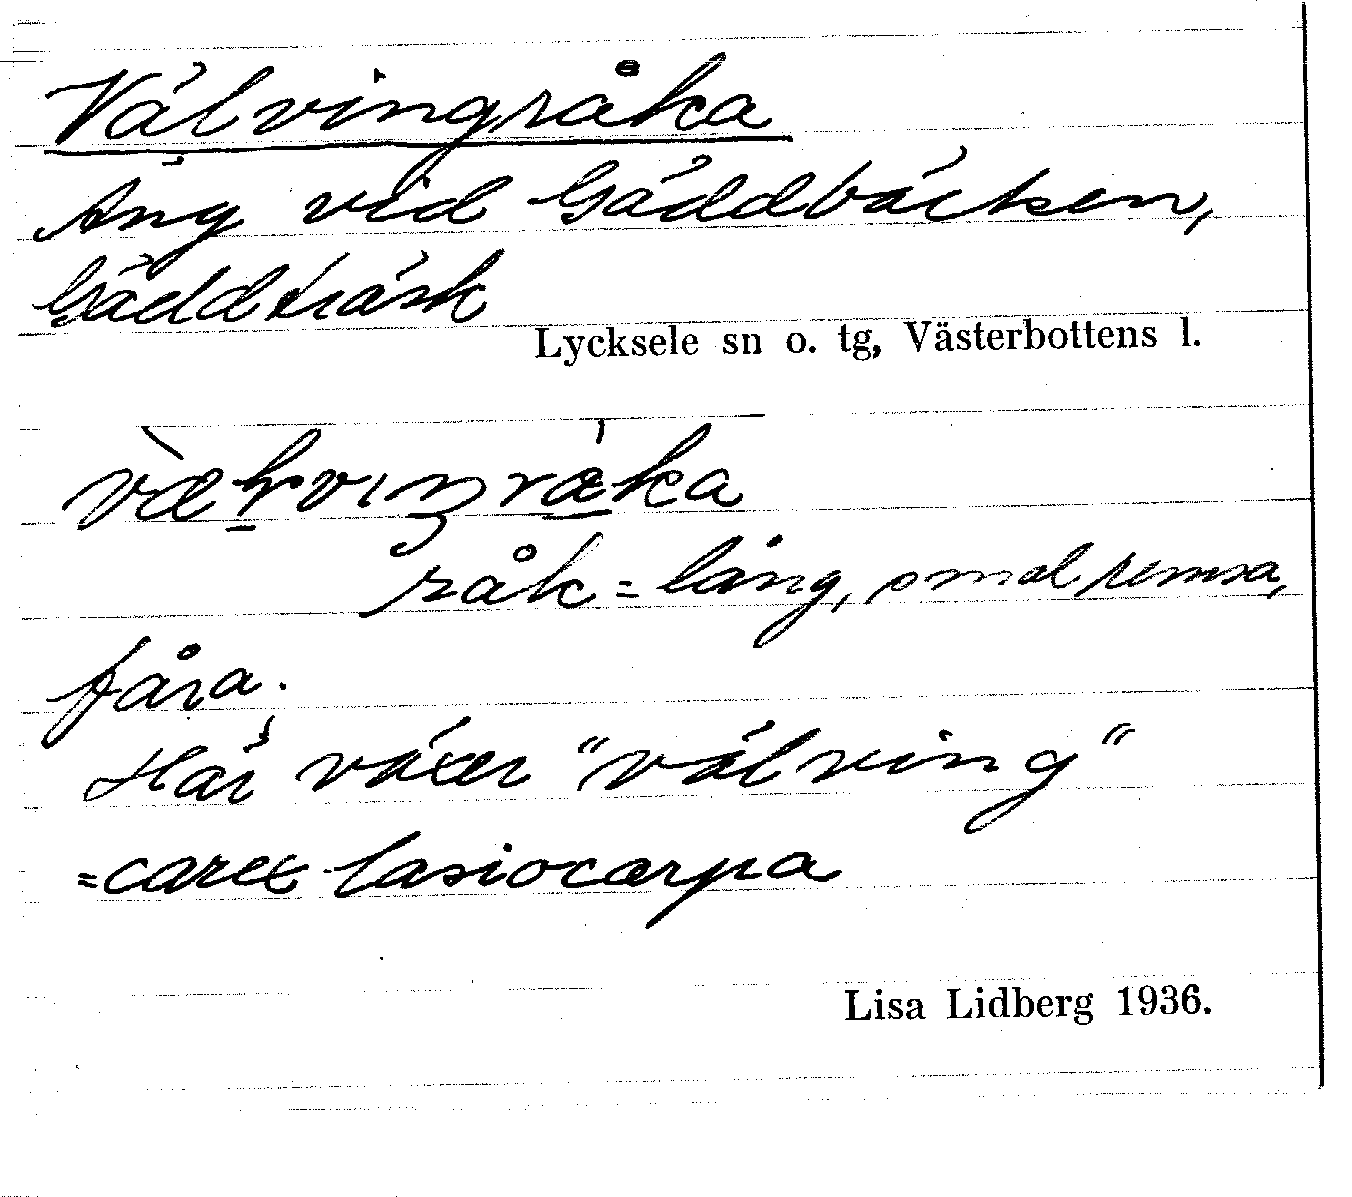 Välvingråka
Äng vid Gäddbäcken,
Gäddträsk
Lycksele sn o. tg, Västerbottens l.
råk = lång, smal remsa,
fåra.
Här växer "välving"
= carex lasiocarpa
Lisa Lidberg 1936.